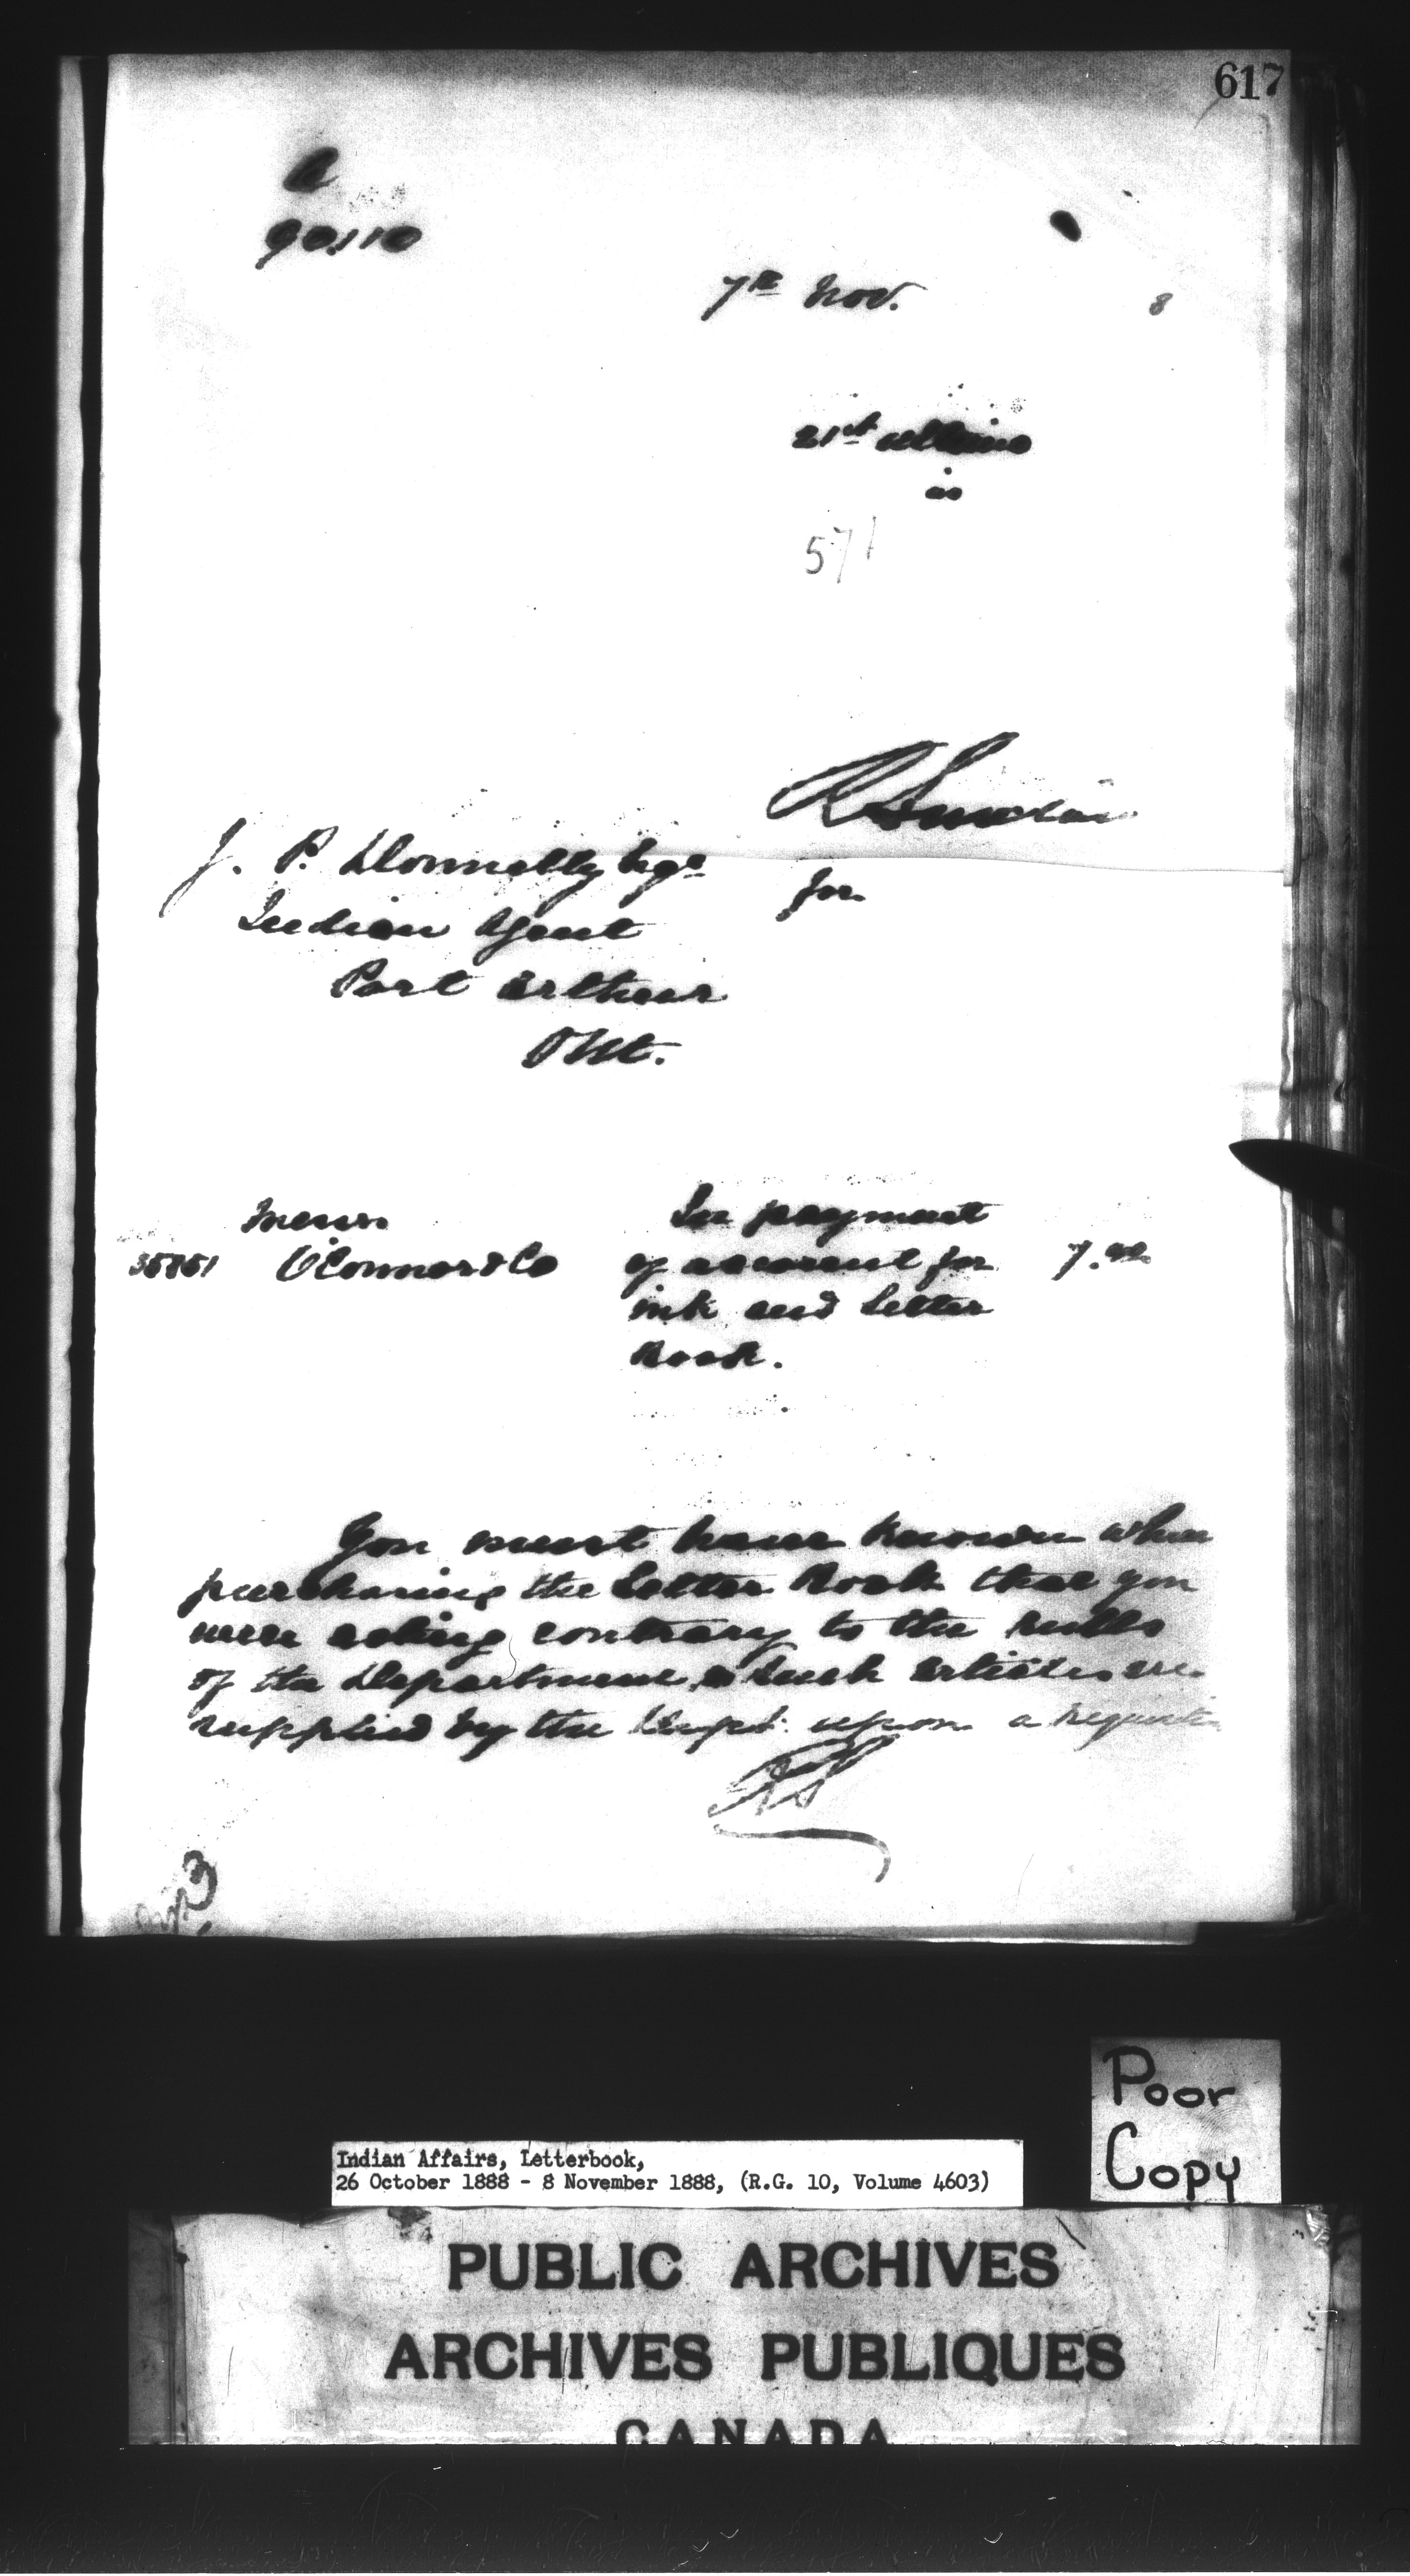 617
90,110
7th Nov. 8
21st ultimo
is
571
R Sinclair
for
J. P. Donnelly Esqr
Indian Agent
Port Arthur
Ont.
Messrs In payment
35851 O'Connor & Co of account for 7.00
ink and letter
Book.
You must have known when
purchasing the Letter Book that you
were acting contrary to the rules
of the Department, such articles are
supplied by the Dept. upon a requisition
RS
Poor
Copy
Indian Affairs, Letterbook,
26 October 1888 - 8 November 1888, (R.G. 10, Volume 4603)
PUBLIC ARCHIVES
ARCHIVES PUBLIQUES
CANADA